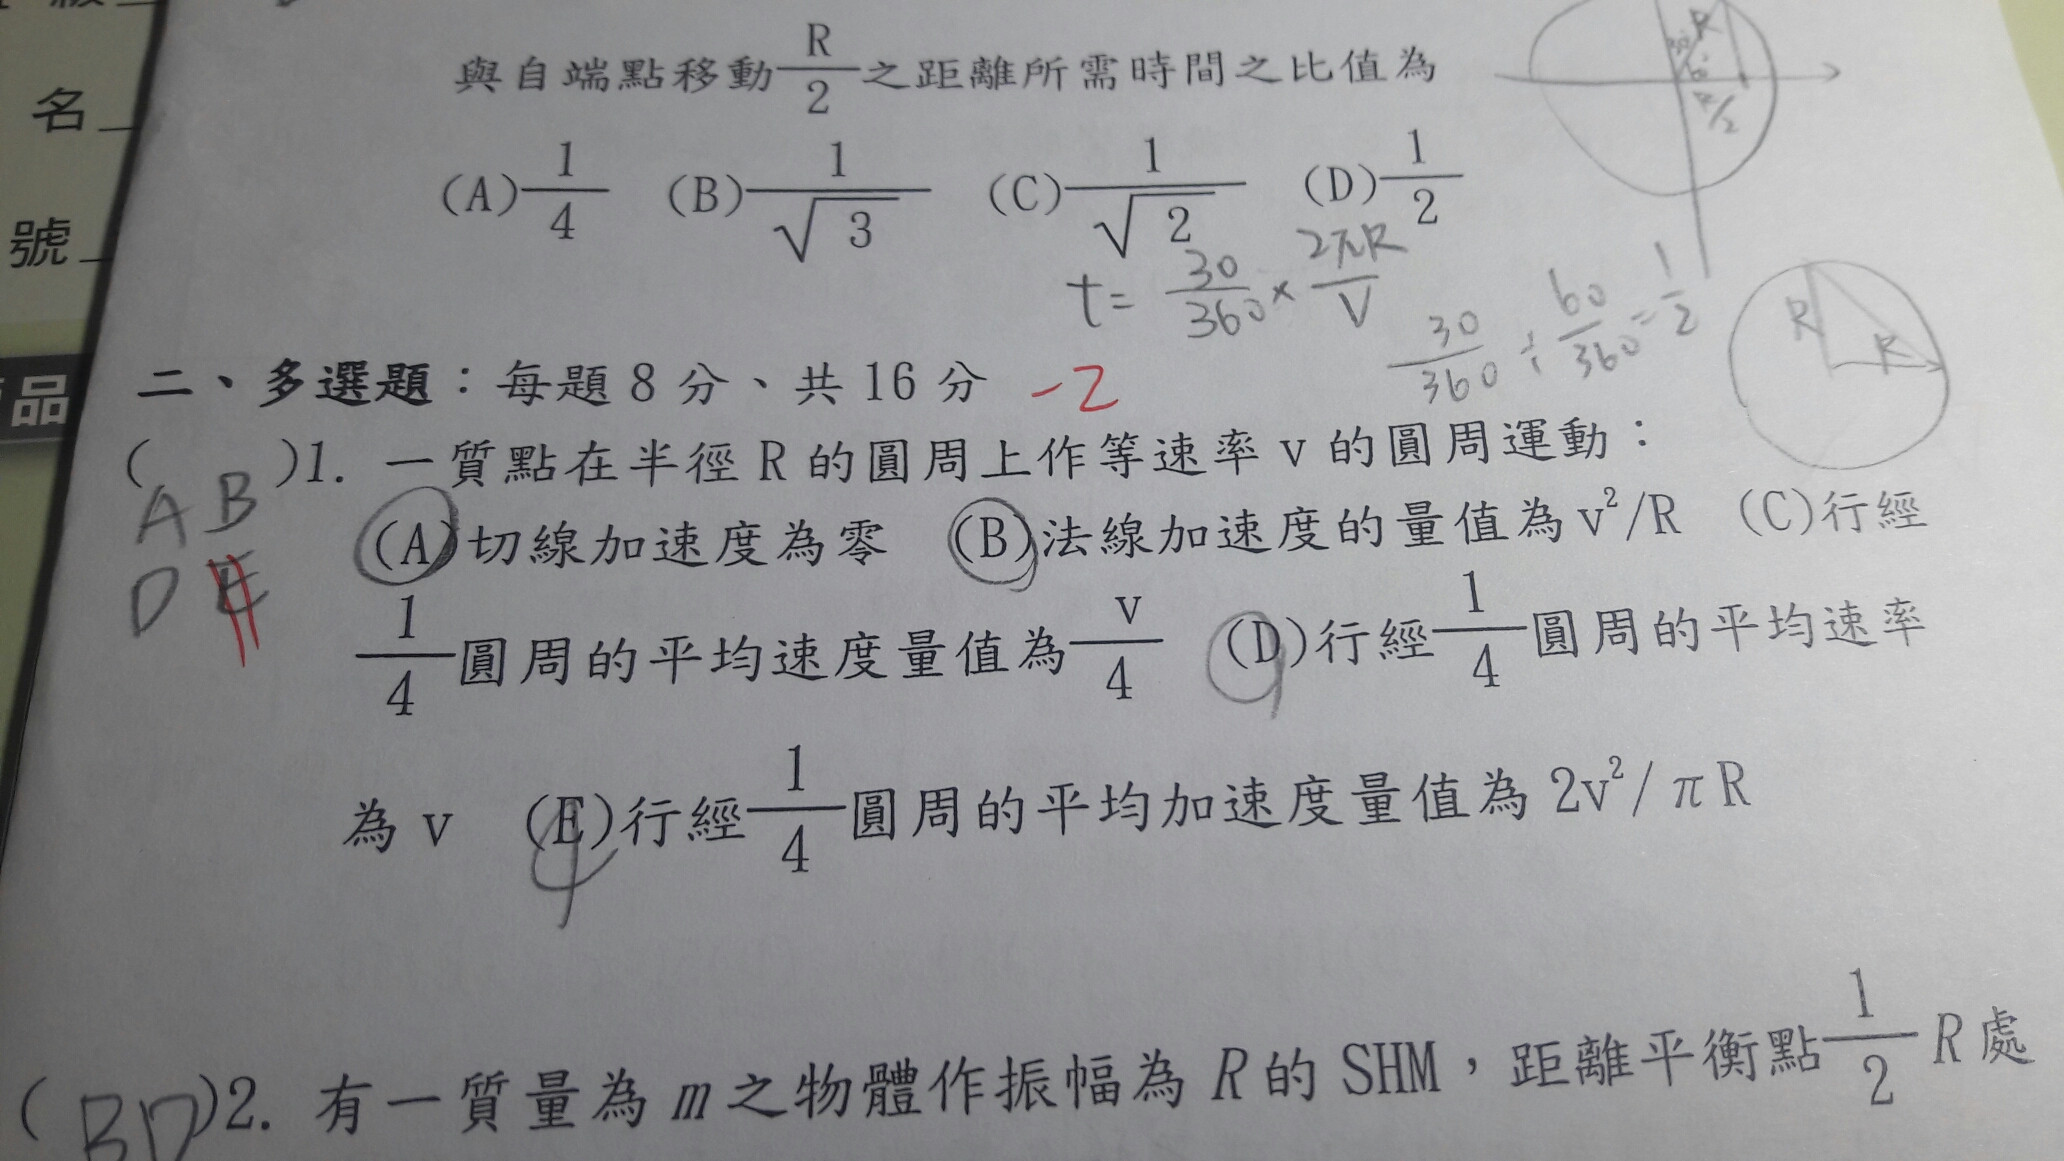 名
號
品
與自端點移動 R/2 之距離所需時間之比值為
(A) 1/4 (B) 1/√3 (C) 1/√2 (D) 1/2
R
R/2
t = 30/360 × 2πR/V
30/360 ÷ 60/360 = 1/2
R R
二、多選題：每題8分、共16分 -2
( AB DE )1. 一質點在半徑R的圓周上作等速率v的圓周運動：
(A)切線加速度為零 (B)法線加速度的量值為v²/R (C)行經
1/4 圓周的平均速度量值為 v/4 (D)行經 1/4 圓周的平均速率
為v (E)行經 1/4 圓周的平均加速度量值為2v²/πR
( BD )2. 有一質量為m之物體作振幅為R的SHM，距離平衡點 1/2 R處